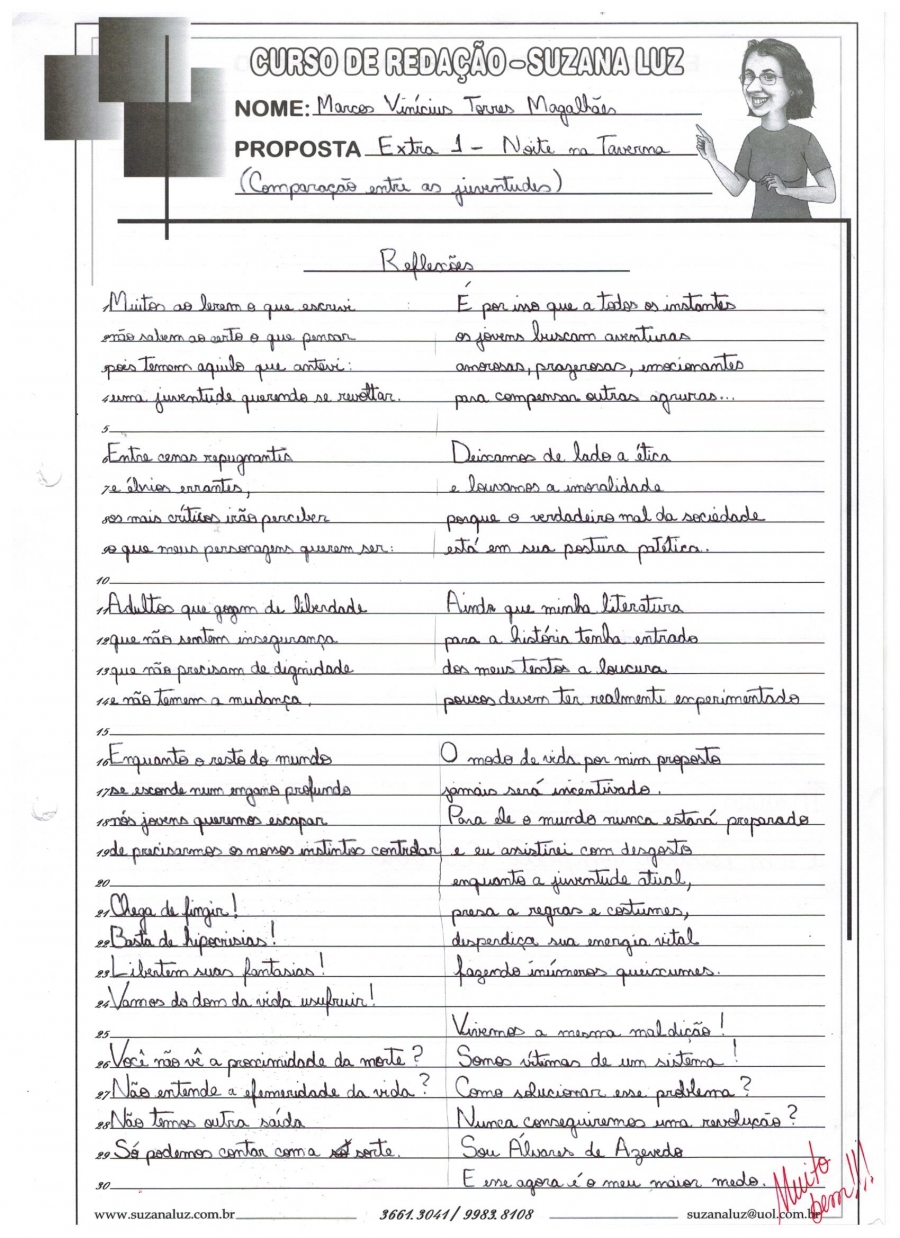 CURSO DE REDAÇÃO - SUZANA LUZ
NOME: Marcos Vinícius Torres Magalhães
PROPOSTA Extra 1 - Noite na Taverna
(Comparação entre as juventudes)
Reflexões
1 Muitos ao lerem o que escrevi
2 não sabem ao certo o que pensar
3 pois temem aquilo que antevi:
4 uma juventude querendo se revoltar.
5
6 Entre cenas repugnantes
7 e ébrios errantes,
8 os mais críticos irão perceber
9 o que meus personagens querem ser:
10
11 Adultos que gozam de liberdade
12 que não sentem insegurança
13 que não precisam de dignidade
14 e não temem a mudança.
15
16 Enquanto o resto do mundo
17 se esconde num engano profundo
18 nós jovens queremos escapar
19 de precisarmos os nossos instintos controlar
20
21 Chega de fingir!
22 Basta de hipocrisias!
23 Libertem suas fantasias!
24 Vamos do dom da vida usufruir!
25
26 Você não vê a proximidade da morte?
27 Não entende a efemeridade da vida?
28 Não temos outra saída
29 Só podemos contar com a sorte.
30
É por isso que a todos os instantes
os jovens buscam aventuras
amorosas, prazerosas, emocionantes
para compensar outras agruras...
Deixamos de lado a ética
e louvamos a imoralidade
porque o verdadeiro mal da sociedade
está em sua postura patética.
Ainda que minha literatura
para a história tenha entrado
dos meus textos a loucura
poucos devem ter realmente experimentado
O modo de vida por mim proposto
jamais será incentivado.
Para ele o mundo nunca estará preparado
e eu assistirei com desgosto
enquanto a juventude atual,
presa a regras e costumes,
disperdiça sua energia vital
fazendo inúmeros queixumes.
Vivemos a mesma maldição!
Somos vítimas de um sistema!
Como solucionar esse problema?
Nunca conseguiremos uma revolução?
Sou Álvares de Azevedo
E esse agora é o meu maior medo.
Muito bem!!!
www.suzanaluz.com.br 3661.3041 / 9983.8108 suzanaluz@uol.com.br